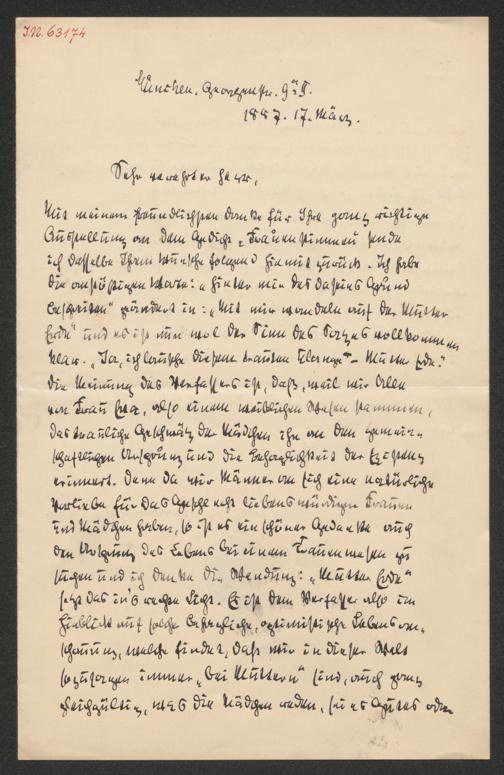 I.N. 63174
München. Georgenstr. 9/II.
1887. 17. März.
Sehr verehrter Herr,
Mit meinem freundlichsten Danke für Ihre ganz richtige
Ausstellung an dem Gedicht „Frauenstimmen" sende
ich dasselbe Ihrem Wunsche folgend hiemit zurück. Ich habe
die anstößigen Worte: „hinter mir des Daseins Grund
beschritten" geändert in: „Mit mir wandeln auf der Mutter
Erde" und es ist nun wol der Sinn des Satzes vollkommen
klar. „Ja, ich lausche diesem trauten" – Mutter Erde."
Die Meinung des Verfassers ist, daß, weil wir Alle
von Frau Eva, also einem weiblichen Wesen stammen,
das trauliche Geschwätz der Mädchen ihn an den gemein-
schaftlichen Ursprung und die Behaglichkeit der Existenz
erinnert. Denn da wir Männer an sich eine natürliche
Vorliebe für das Geschlecht liebenswürdiger Frauen
und Mädchen haben, so ist es ein schöner Gedanke auch
den Ursprung des Lebens bei einem Frauenwesen zu
suchen und ich denke die Wendung: „Mutter Erde"
setzt das in's rechte Licht. Es ist dem Verfasser also im
Hinblick auf solche behagliche, optimistische Lebensan-
schauung, welche findet, daß wir in dieser Welt
sozusagen immer „bei Muttern" sind, auch ganz
gleichgültig, was die Mädchen reden, sei es Gutes oder